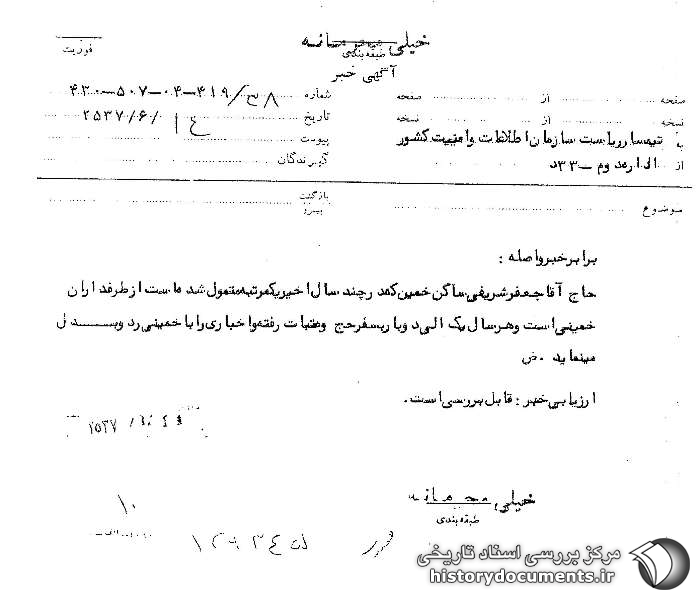 خیلی محرمانه
طبقه‌بندی
فوریت
آگهی خبر
صفحه از صفحه
شماره ۴۳۰-۵۰۷-۰۴-۴۱۹/۳۸
نسخه از نسخه
تاریخ ۲۵۳۷/۶/
به تیمسار ریاست سازمان اطلاعات و امنیت کشور
پیوست
از اداره دوم - ۳۳د
گیرندگان
موضوع
بازگشت
پیرو
برابر خبر واصله :
حاج آقا جعفر شریفی ساکن خمین که در چند سال اخیر یکمرتبه متمول شده است از طرفداران
خمینی است و هر سال یک الی دو بار بسفر حج و عتبات رفته و اخباری را با خمینی رد و بدل
مینماید . ض
ارزیابی خبر : قابل بررسی است .
خیلی محرمانه
طبقه بندی
۱۰
مرکز بررسی اسناد تاریخی
historydocuments.ir